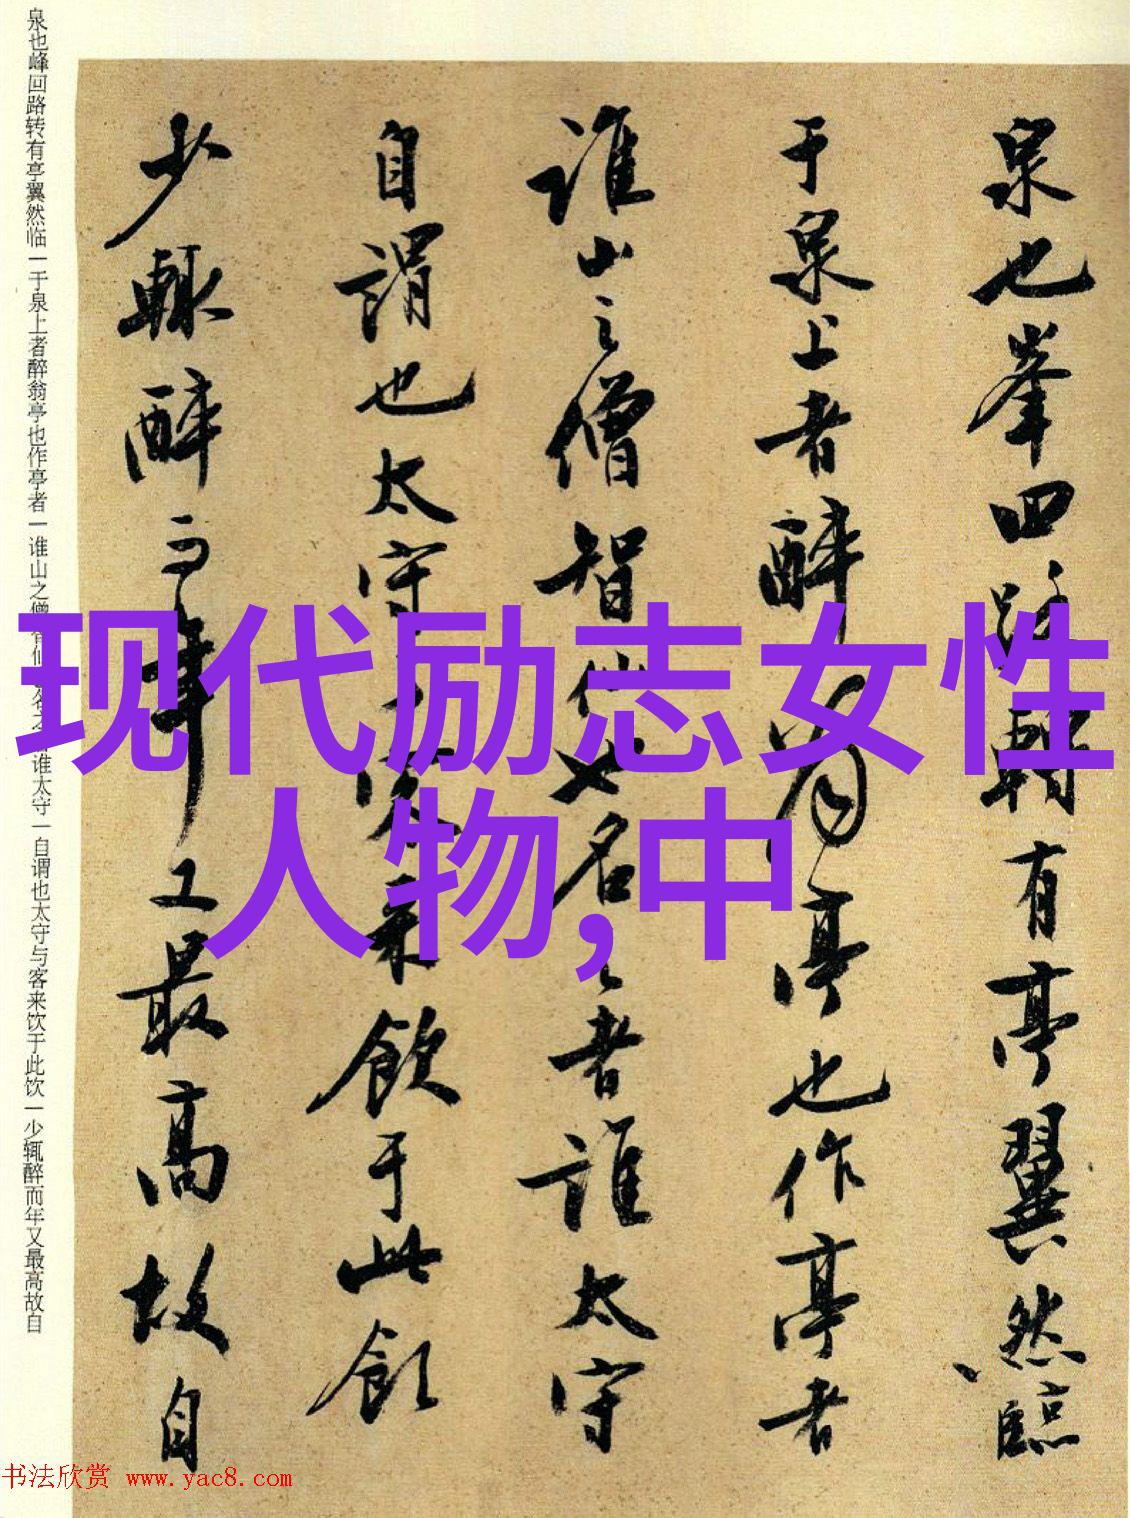 泉也峯回路轉有亭翼然臨
于泉上者醉翁亭也作亭者
誰山之僧智仙也名之者誰太守
自謂也太守与客来飲于此飲
少輒醉而年又最高故自
泉也峰回路转有亭翼然临一于泉上者醉翁亭也作亭者一谁山之僧智仙名之谁太守一自谓也太守与客来饮于此饮一少辄醉而年又最高故自
现代励志女性
人物,中
书法欣赏 www.yac8.com